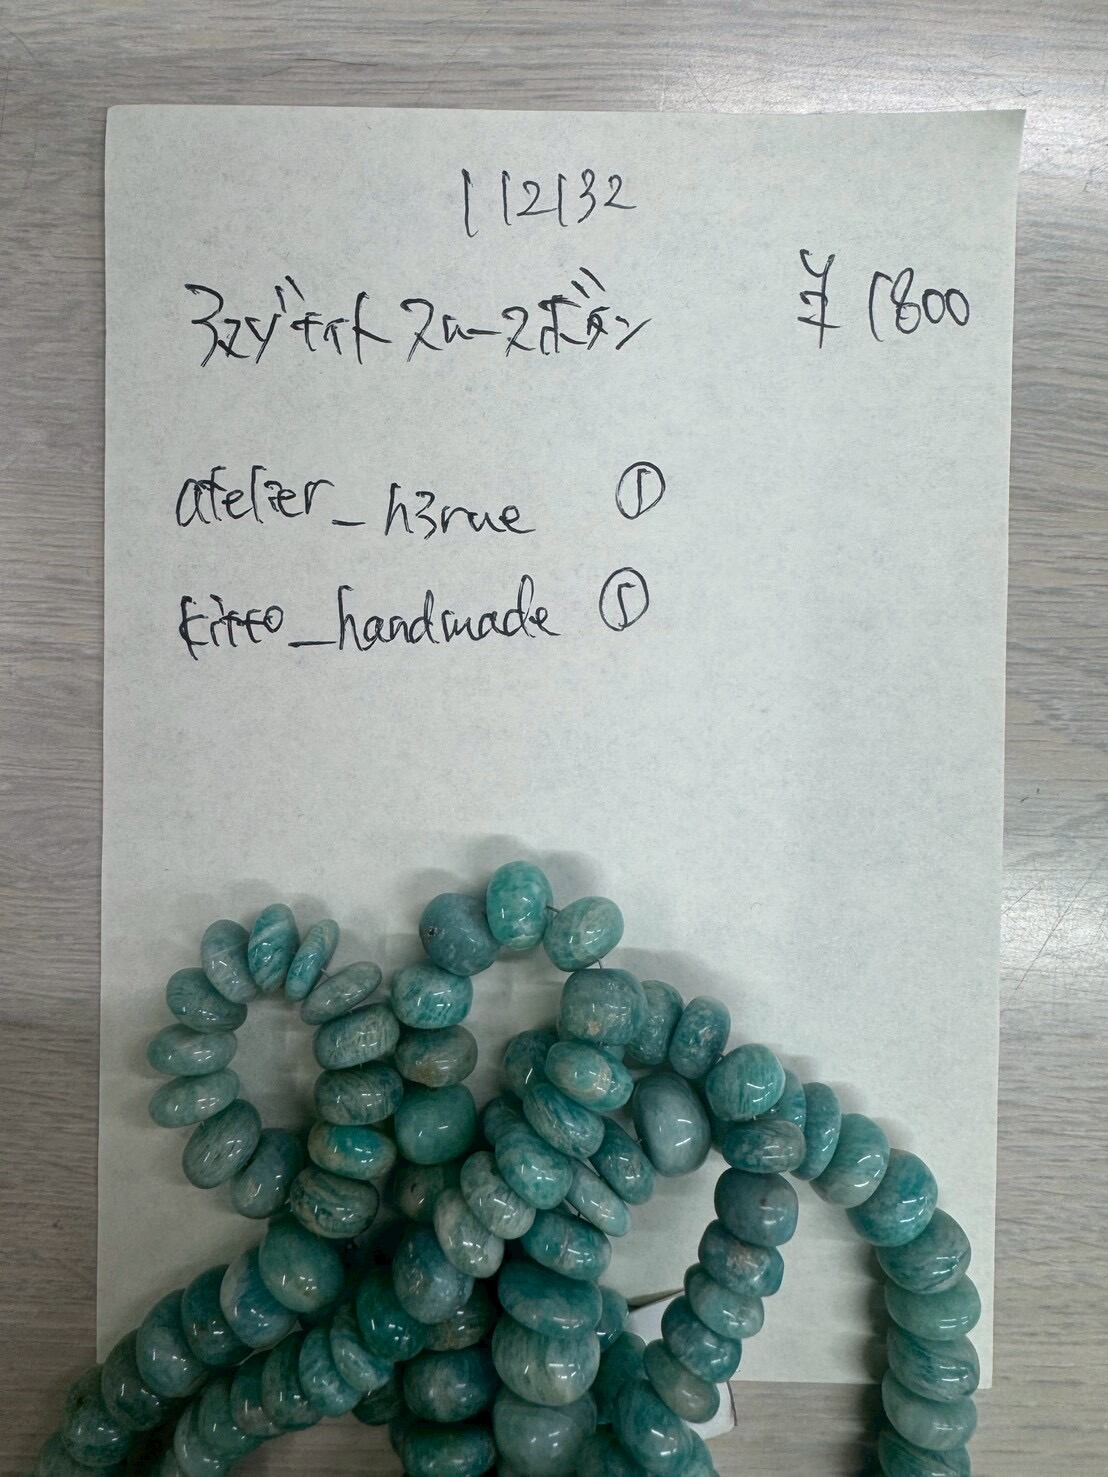 112132
アマゾナイト スムースボタン ¥1800
atelier_h3rue ①
kitto_handmade ①